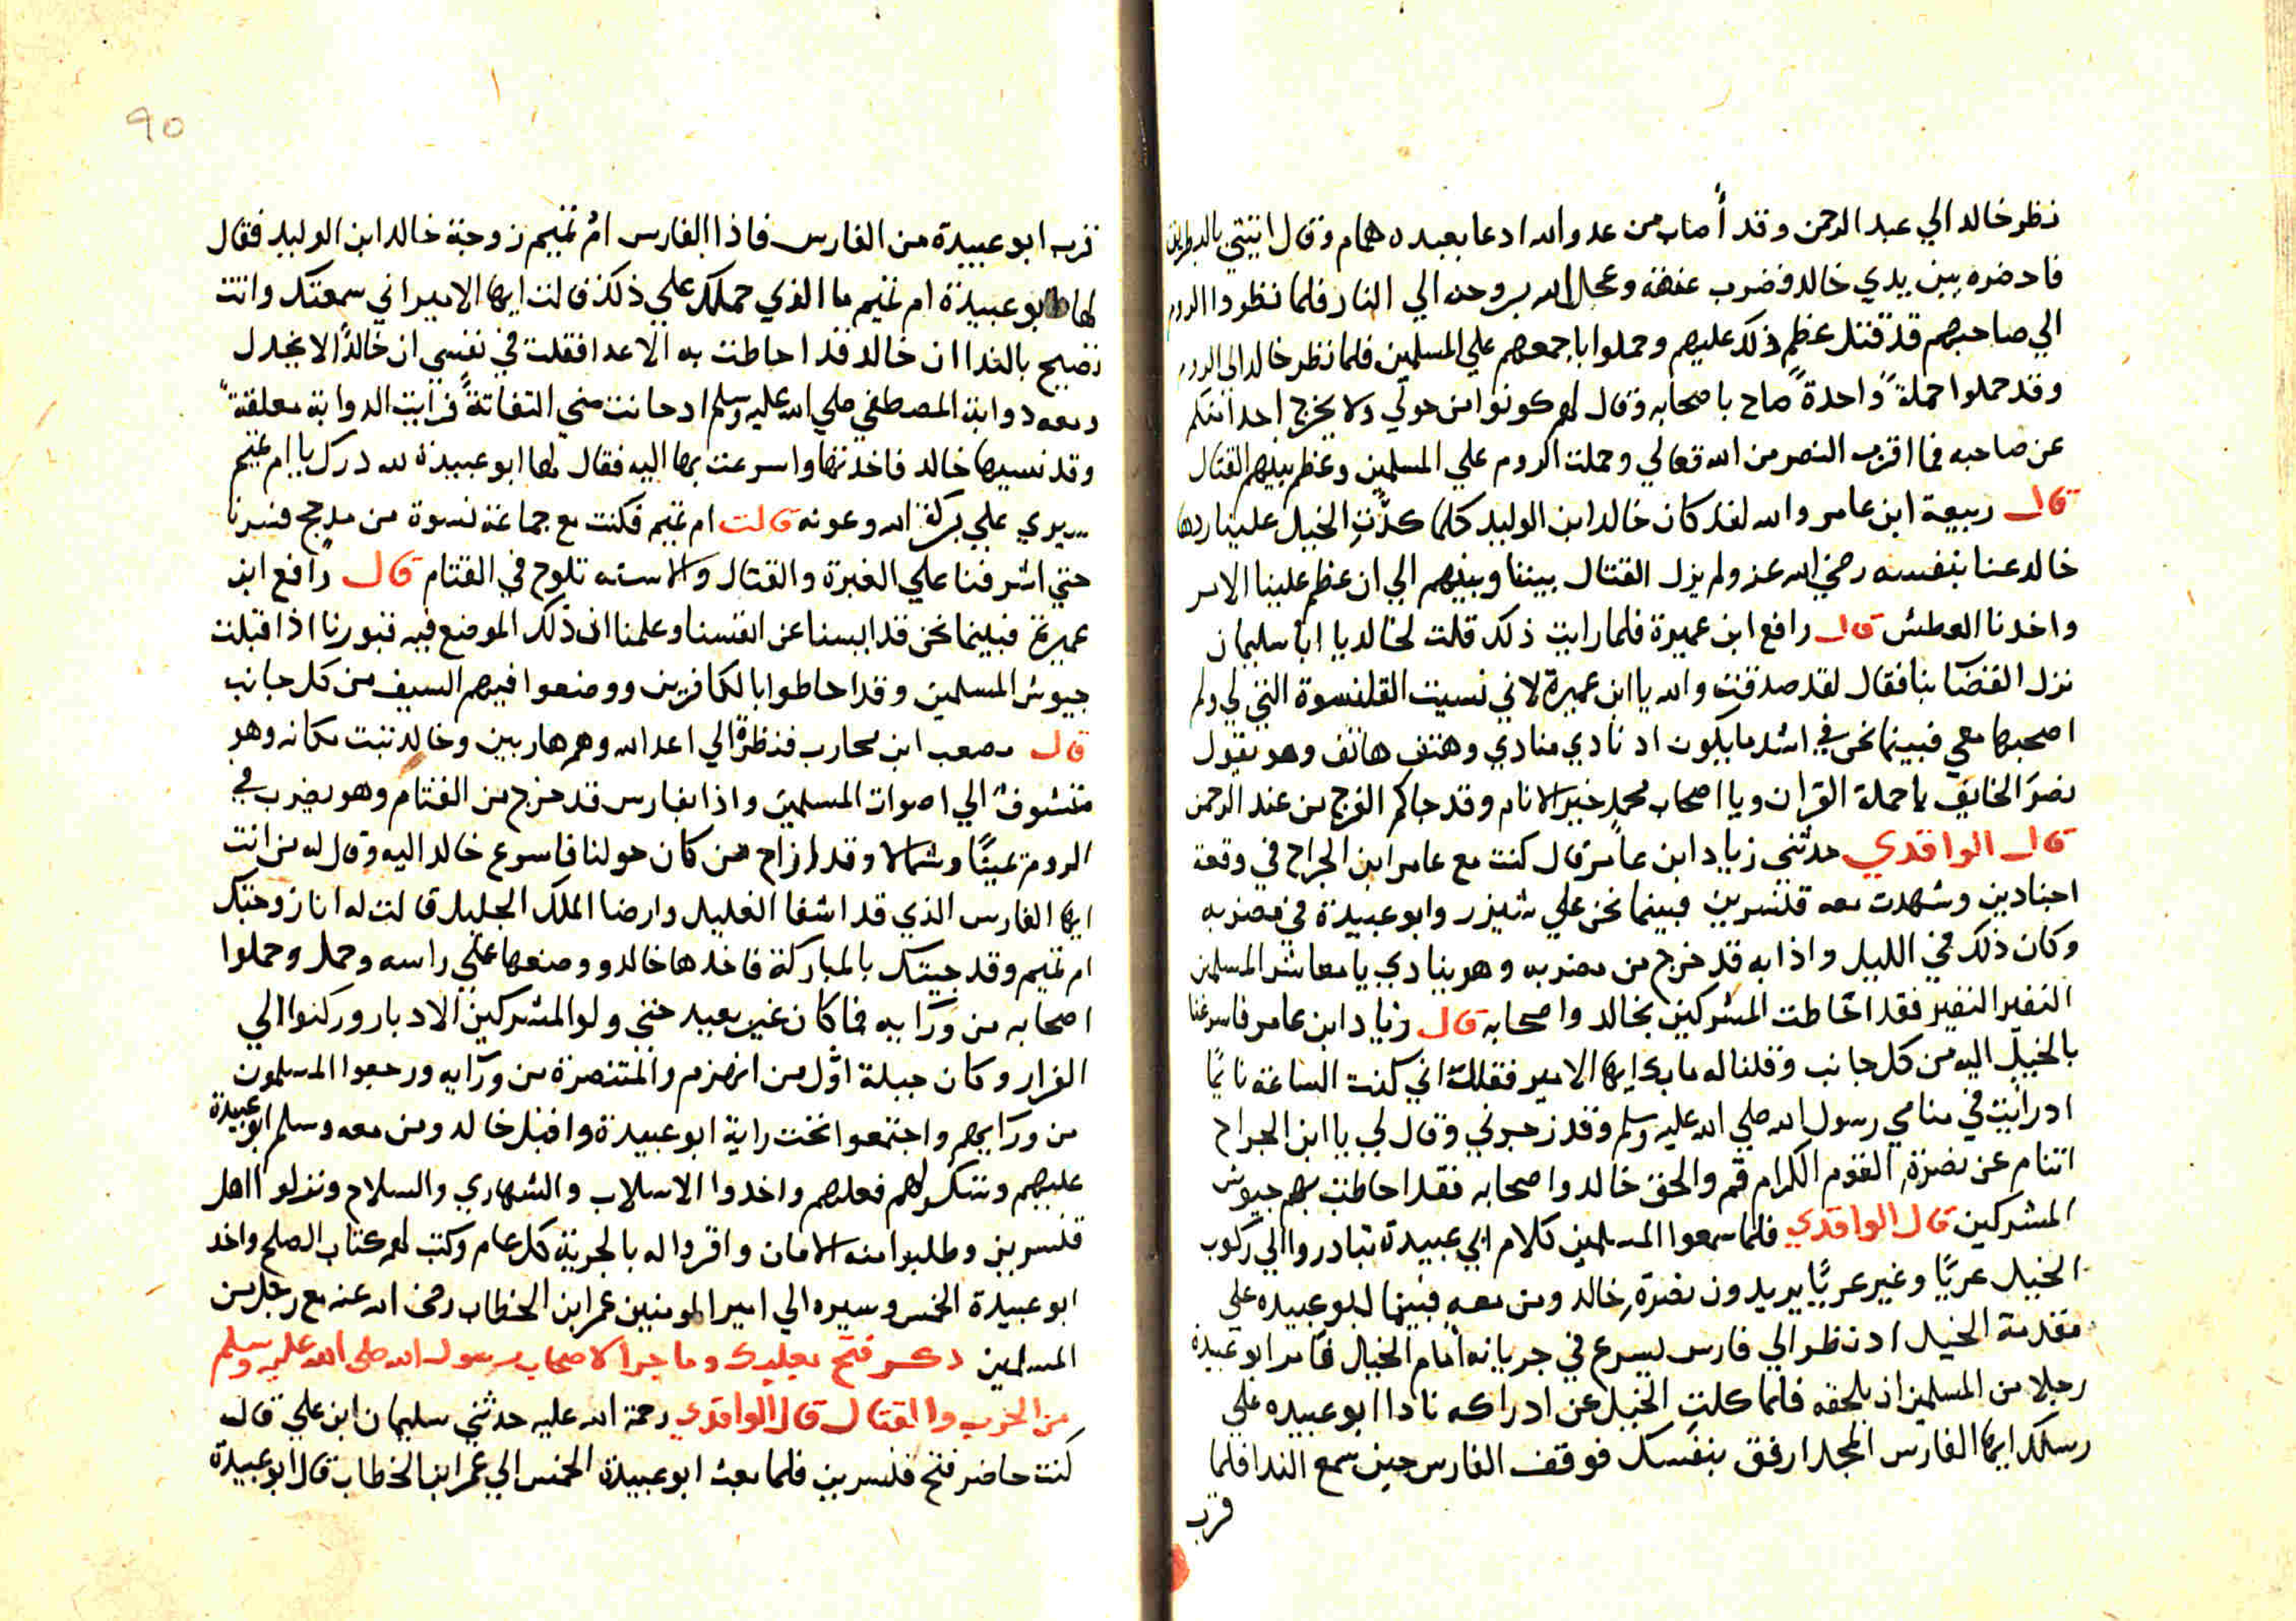 نظر خالد الي عبد الرحمن وقد أصاب من عدو الله ادعا بعبده همام وقال ايتني بالبطريق
فاحضره بين يدي خالد فضرب عنقه وعجل الله بروحه الي النار فلما نظروا الروم
الي صاحبهم قد قتل عظم ذلك عليهم وحملوا باجمعهم علي المسلمين فلما نظر خالد الى الروم
وقد حملوا حملةً واحدةً صاح باصحابه وقال لهم كونوا من حولي ولا يخرج احد منكم
عن صاحبه فما اقرب النصر من الله تعالي وحملت الروم علي المسلمين وعظم بينهم القتال
قال ربيعة ابن عامر والله لقد كان خالد ابن الوليد كلما كدّت الخيل علينا ردها
خالد عنا بنفسه رضي الله عنه ولم يزل القتال بيننا وبينهم الي ان عظم علينا الامر
واخدنا العطش قال رافع ابن عميرة فلما رايت ذلك قلت لخالد يا ابا سليمان
نزل القضا بنا فقال لقد صدقت والله يا ابن عميرة لاني نسيت القلنسوة التي لي ولم
اصحبها معي فبينما نحن في اشد ما يكون اد نادي منادي وهتف هاتف وهو يقول
نصر الخايف يا حملة القران ويا اصحاب محمد خير الانام وقد جاكم الفرج من عند الرحمن
قال الواقدي حدثني زياد ابن عامر قال كنت مع عامر ابن الجراح في وقعة
اجنادين وشهدت معه قنسرين فبينما نحن علي شيزر وابو عبيدة في مضربه
وكان ذلك في الليل واذا به قد خرج من مضربه وهو ينادي يا معاشر المسلمين
النفير النفير فقد احاطت المشركين بخالد واصحابه قال زياد ابن عامر فاسرعنا
بالخيل اليه من كل جانب وقلنا له ما بك ايها الامير فقال اني كنت الساعة نايمًا
اد رايت في منامي رسول الله صلي الله عليه وسلم وقد زجرني وقال لي يا ابن الجراح
اتنام عن نصرة القوم الكرام قم والحق خالد واصحابه فقد احاطت بهم جيوش
المشركين قال الواقدي فلما سمعوا المسلمين كلام ابي عبيدة تبادروا الي ركوب
الخيل عريًا وغير عريًا يريدون نصرة خالد ومن معه فبينما ابو عبيده علي
مقدمة الخيل اد نظر الي فارس يسرع في جريانه امام الخيال فامر ابو عبيدة
رجلا من المسلمين ان يلحقه فلما كلت الخيل عن ادراكه نادا ابو عبيده علي
رسلك ايها الفارس المجد ارفق بنفسك فوقف الفارس حين سمع الندا فلما
قرب
90
قرب ابو عبيدة من الفارس فاذا الفارس ام تميم زوجة خالد ابن الوليد فقال
لها ابو عبيدة ام تميم ما الذي حملك علي ذلك قالت ايها الامير اني سمعتك وانت
تصيح بالندا ان خالد قد احاطت به الاعدا فقلت في نفسي ان خالدًا لا يخدل
ومعه دوابة المصطفي صلي الله عليه وسلم اد حانت مني التفاتةً فرايت الدوابة معلقةً
وقد نسيها خالد فاخدتها واسرعت بها اليه فقال لها ابو عبيدة لله درك يا ام تميم
سيري علي بركة الله وعونه قالت ام تميم فكنت مع جماعة نسوة من مدحج فسرنا
حتي اشرفنا علي الغبرة والقتال والاسنه تلوح في القتام قال رافع ابن
عميرة فبينما نحن قد ايسنا عن انفسنا وعلمنا ان ذلك الموضع فيه قبورنا اذا قبلت
جيوش المسلمين وقد احاطوا بالكافرين ووضعوا فيهم السيف من كل جانب
قال مصعب ابن محارب فنظرة الي اعدا الله وهم هاربين وخالد تبت مكانه وهو
متشوف الي اصوات المسلمين واذا بفارس قد خرج من القتام وهو يضرب في
الروم يمينًا وشمالا وقد ازاح من كان حولنا فاسرع خالد اليه وقال له من انت
ايها الفارس الذي قد اشفا الغليل وارضا الملك الجليل قالت له انا زوجتك
ام تميم وقد جيتك بالمباركة فاخدها خالد ووضعها علي راسه وحمل وحملوا
اصحابه من ورآيه فما كان غير بعيد حتي ولو المشركين الادبار وركنوا الي
الفرار وكان جبلة اوّل من انهزم والمتنصرة من ورآيه ورجعوا المسلمون
من ورآيهم واجتمعوا تحت راية ابو عبيدة واقبل خالد ومن معه وسلم ابو عبيدة
عليهم وشكر لهم فعلهم واخدوا الاسلاب والشهاري والسلاح ونزلوا اهل
قنسرين وطلبوا منه الامان واقروا له بالجزية كل عام وكتب لهم كتاب الصلح واخد
ابو عبيدة الخمس وسيره الي امير المومنين عمر ابن الخطاب رضى الله عنه مع رجل من
المسلمين دكر فتح بعلبك وما جرا لاصحاب رسول الله صلى الله عليه وسلم
من الحرب والقتال قال الواقدي رحمة الله عليه حدثني سليمان ابن علي قال
كنت حاضر فتح قنسرين فلما بعث ابو عبيدة الخمس الي عمر ابن الخطاب قال ابو عبيدة